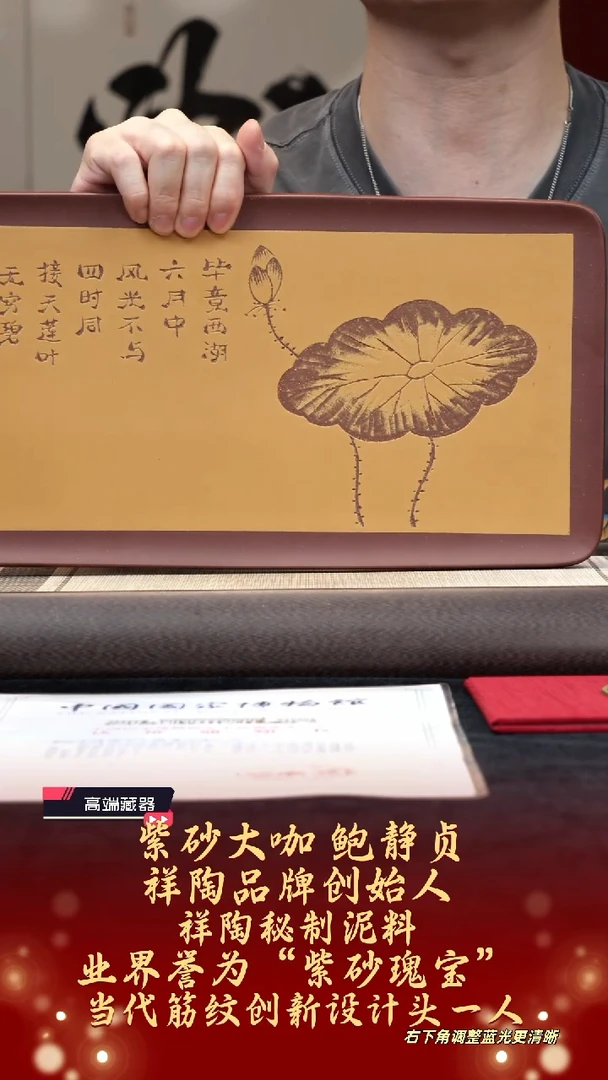 毕竟西湖
六月中
风光不与
四时同
接天莲叶
无穷碧
中国国家博物馆
高端藏器
紫砂大咖 鲍静贞
祥陶品牌创始人
祥陶秘制泥料
业界誉为“紫砂瑰宝”
当代筋纹创新设计头一人
右下角调整蓝光更清晰